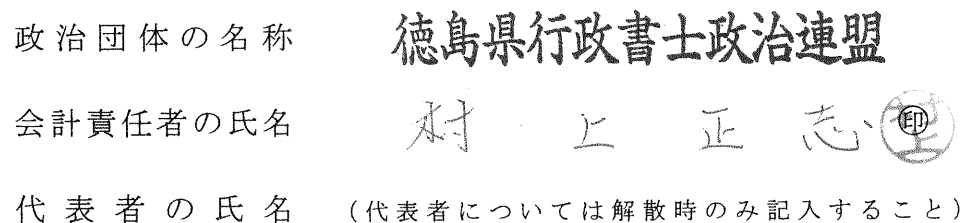 政治団体の名称 徳島県行政書士政治連盟
会計責任者の氏名 村上正志 ㊞
代表者の氏名 (代表者については解散時のみ記入すること)